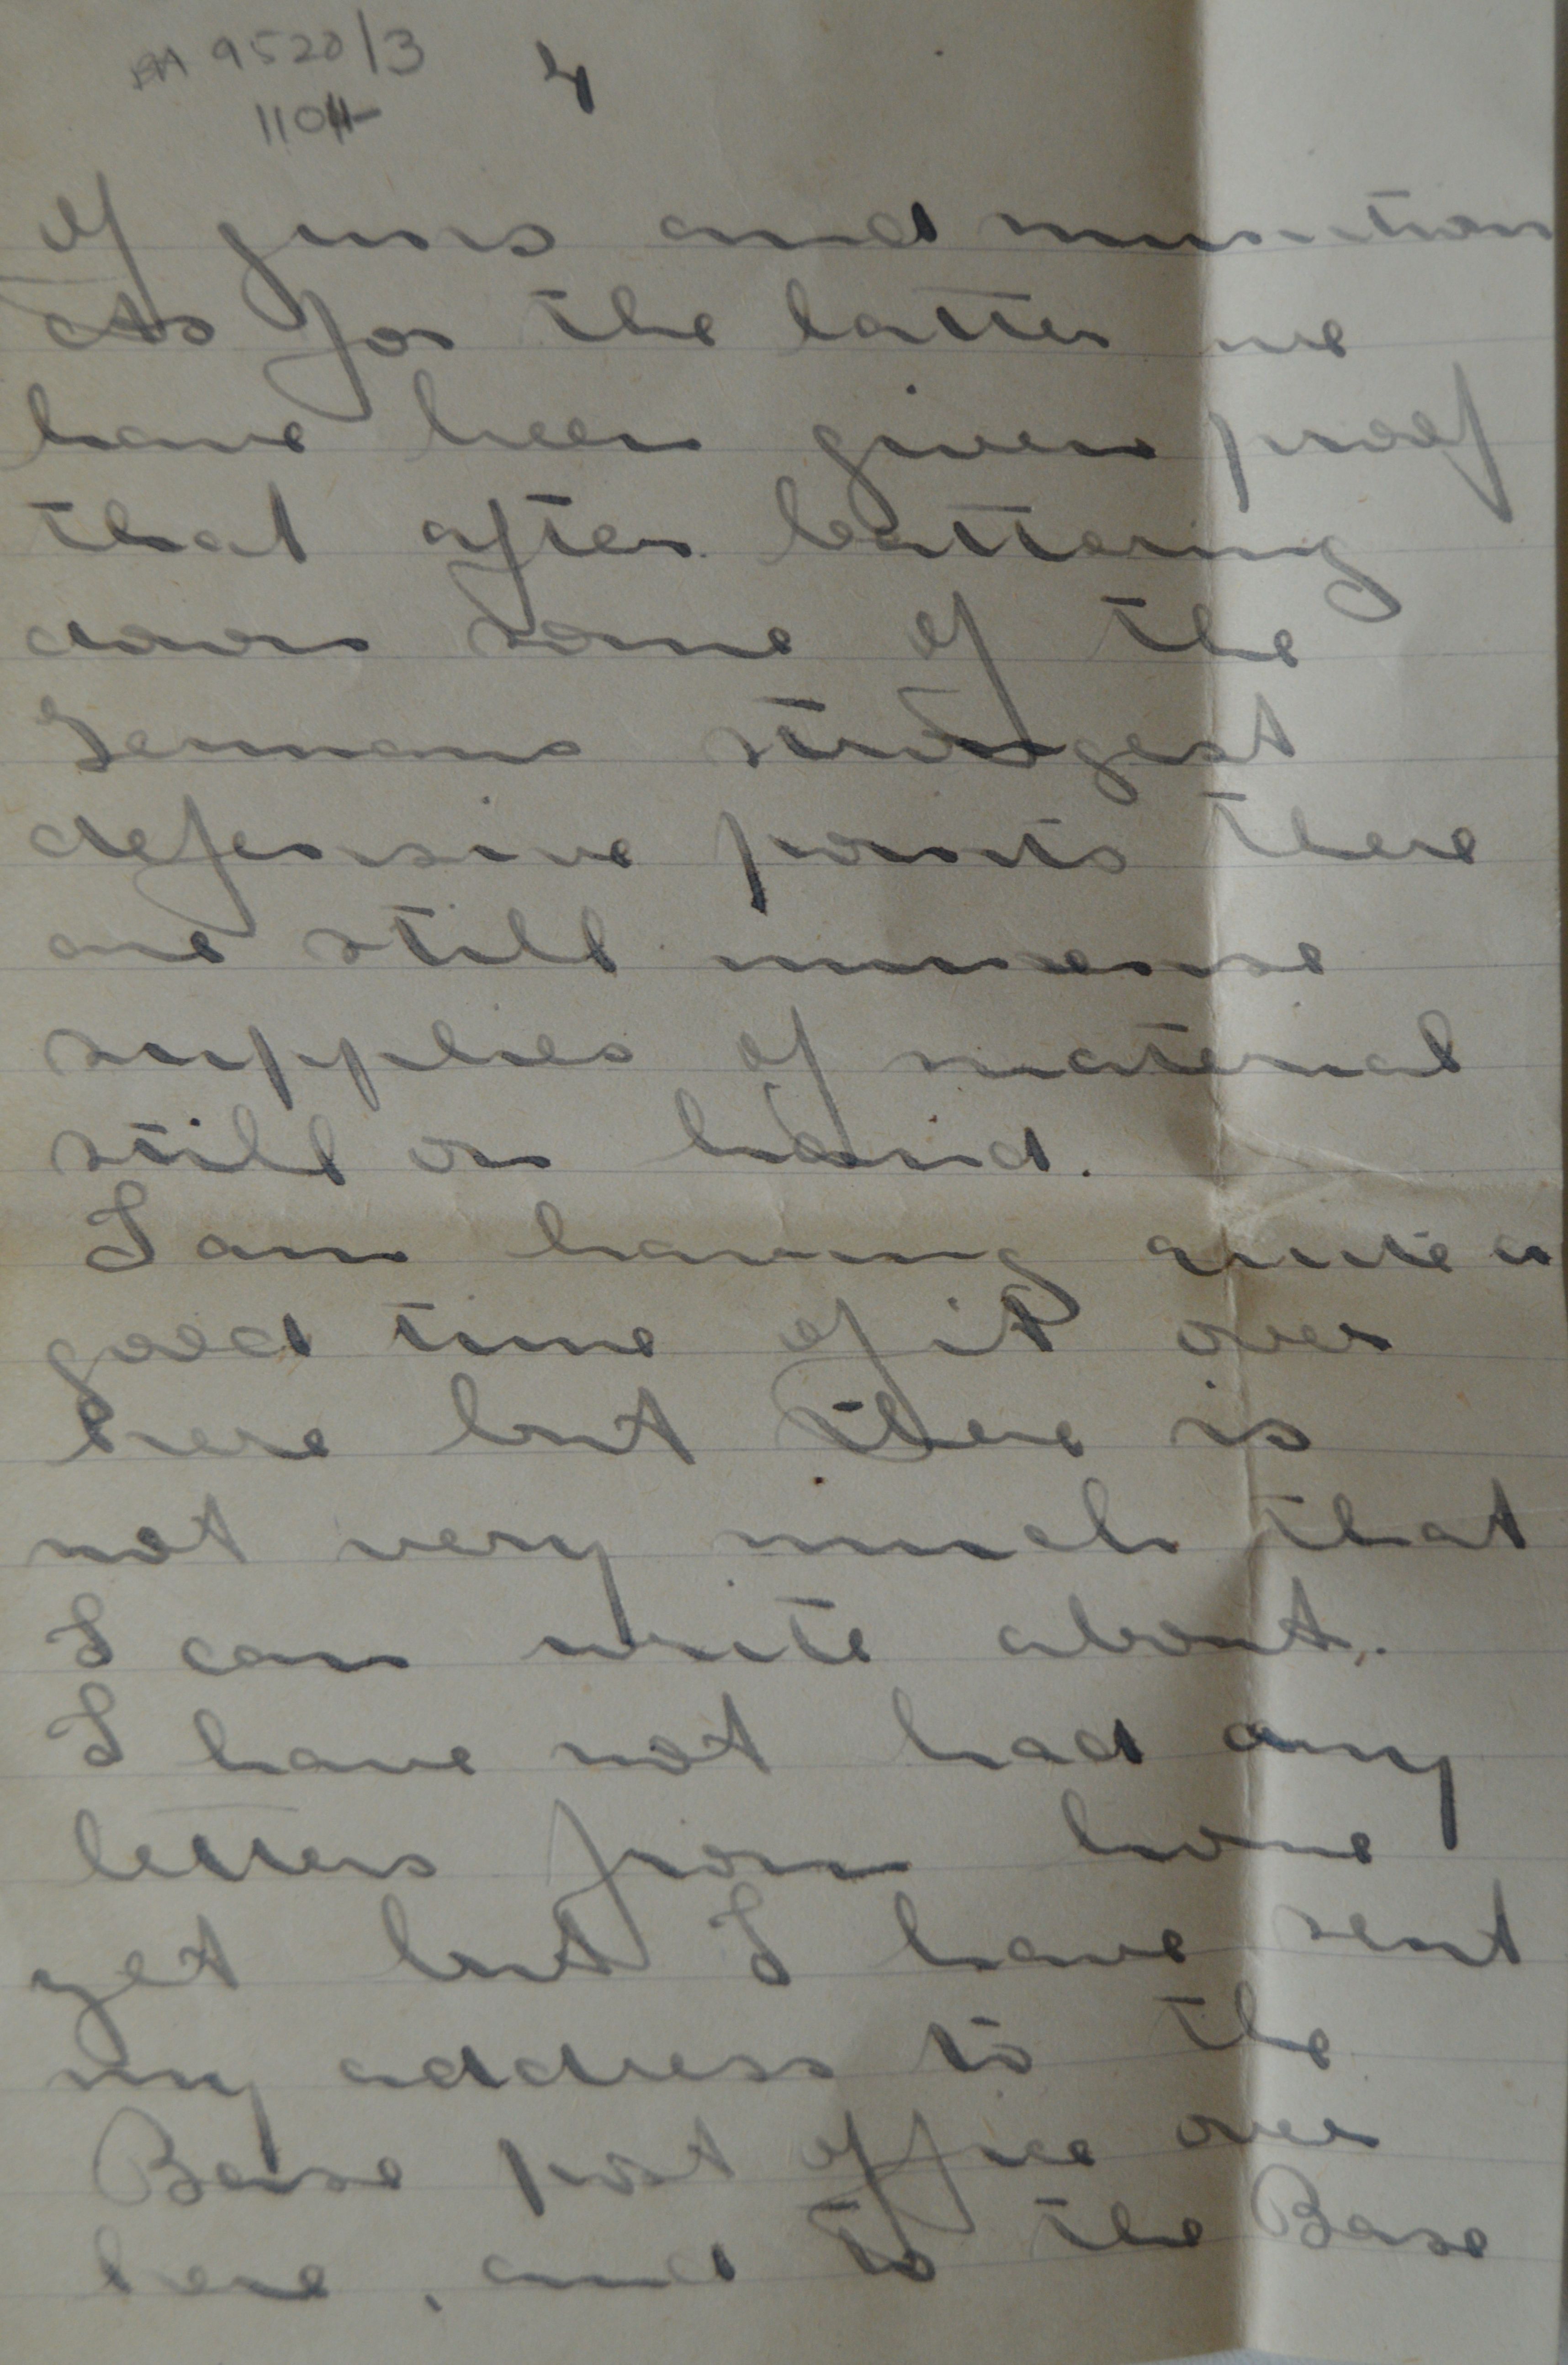 9520/3
4
of guns and munitions
As for the latter we
have been given proof
that after battering
down some of the
Germans strongest
defensive points there
are still immense
supplies of material
still on hand.
I am having quite a
good time of it over
here but there is
not very much that
I can write about.
I have not had any
letters from home
yet but I have sent
my address to the
Base post office over
here, and to the Base